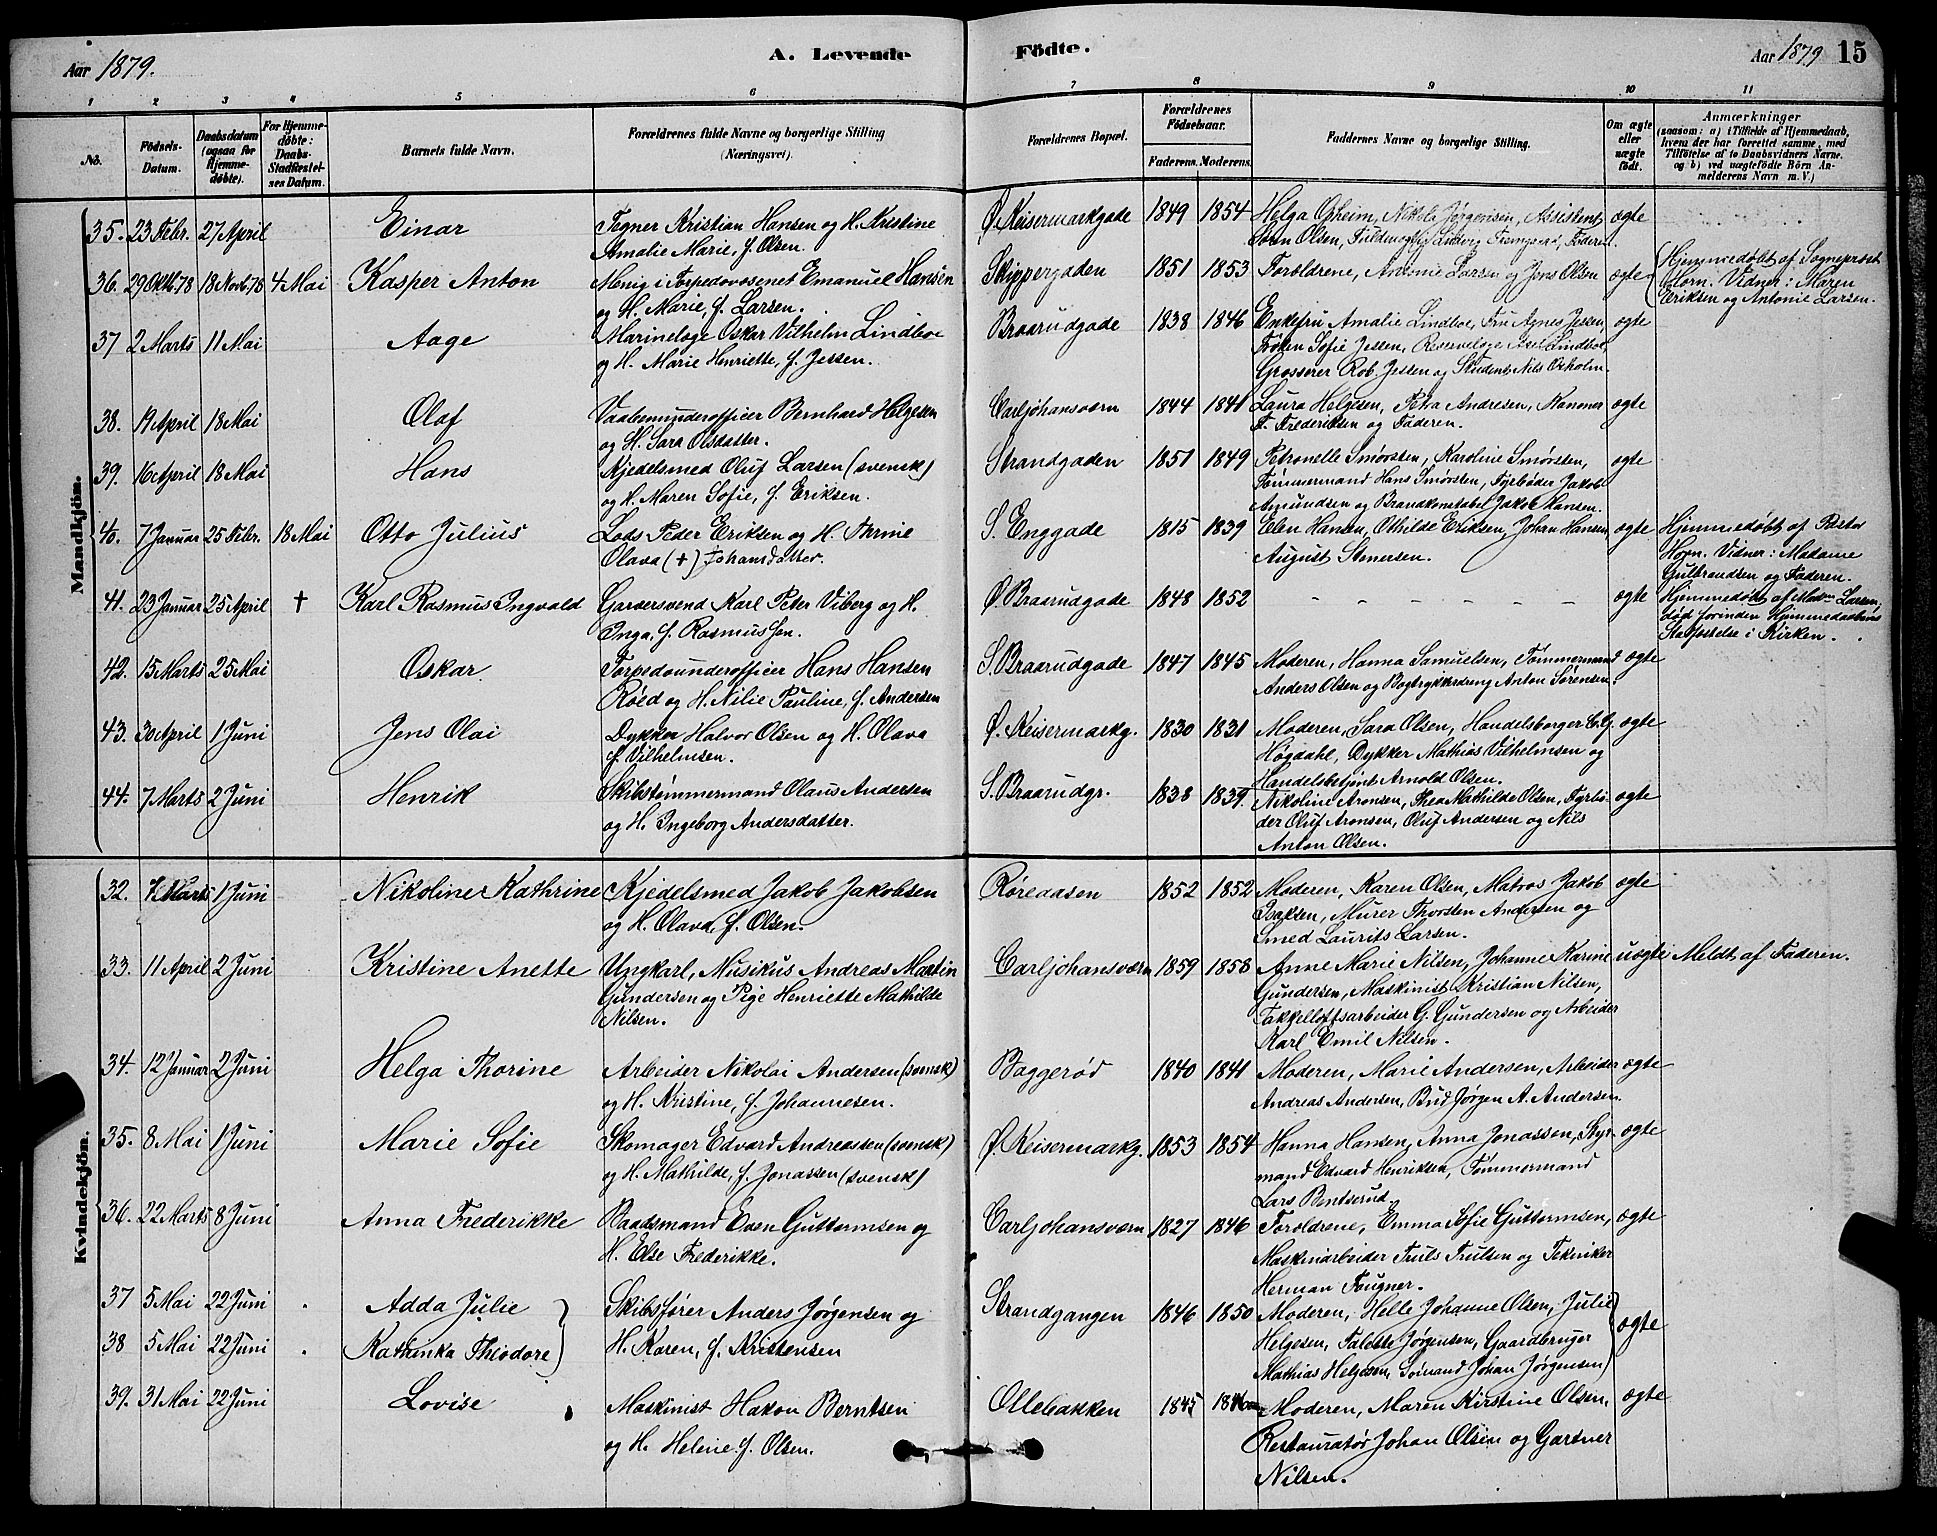 Aar 1879.
A. Levende
Födte.
Aar 1879
15
1 2 3 4 5 6 7 8 9 10 11
No.
Födsels-
Datum.
Daabsdatum
(ogsaa for
Hjemme-
döbte).
For Hjemme-
döbte:
Daabs-
Stadfæstel-
ses Datum.
Barnets fulde Navn.
Forældrenes fulde Navne og borgerlige Stilling
(Næringsvei).
Forældrenes Bopæl.
Forældrenes
Födselsaar.
Faderens. Moderens.
Faddernes Navne og borgerlige Stilling.
Om ægte
eller
uægte
født.
Anmærkninger
(saasom: a) i Tilfælde af Hjemmedaab,
hvem der har forrettet samme, med
Tilföielse af to Daabsvidners Navne,
og b) ved uægtefödte Börn An-
melderens Navn m. V.)
Mandkjön.
35. 23 Febr. 27 April Einar
Tegner Kristian Hansen og H. Kristine
Amalie Marie, f. Olsen.
Ø. Keisermarkgade 1849 1854
Helga Opheim, Nikolai Jørgensen, Assistent
Søren Olsen, Ludvig Faderen.
ægte
36. 29 Oktb. 78 18 Novb. 78 4 Mai Kasper Anton
Menig i Torpedovæsenet Emanuel Hansen
og H. Marie, f. Larsen.
Skippergaden 1851 1853
Forældrene, Antonie Larsen og Jens Olsen
ægte
Hjemmedøbt af Sogneprest
Horn. Vidner: Maren
Eriksen og Antonie Larsen.
37 2 Marts 11 Mai Aage
Marinelæge Oskar Vilhelm Lindboe
og H. Marie Henriette, f. Jessen.
Braarudgade 1838 1846
Enkefru Amalie Lindboe, Fru Agnes Jessen,
Frøken Sofie Jessen, Reservelæge Axel Lindboe,
Grosserer Rob. Jessen og Student Nils Oxholm.
ægte
38. 19 April 18 Mai Olaf
Vaabenunderofficer Bernhard Helgesen
og H. Sara Olsdatter.
Carljohansværn 1844 1841
Laura Helgesen, Petra Andresen, Kanoner
F. Frederiksen og Faderen.
ægte
39. 16 April 18 Mai Hans
Kjedelsmed Oluf Larsen (svensk)
og H. Maren Sofie, f. Eriksen.
Strandgaden 1851 1849
Petronelle Smørsten, Karoline Smørsten,
Tømmermand Hans Smørsten, Fyrbøder Jakob
Amundsen og Brandkonstabel Jakob Hansen.
ægte
40. 7 Januar 25 Febr. 18 Mai Otto Julius
Lods Peder Eriksen og H. Trine
Olava (+) Johansdatter.
S. Enggade 1815 1839
Elen Hansen, Othilde Eriksen, Johan Hansen
August Simersen.
ægte
Hjemmedøbt af Pastor
Horn. Vidner: Madame
Gulbrandsen og Faderen.
41. 23 Januar 25 April † Karl Rasmus Ingvald
Garversvend Karl Peter Viberg og H.
Inga, f. Rasmussen.
Ø. Braarudgade 1848 1852
- - - - - - -
ægte
Hjemmedøbt af Mdm Larsen,
død forinden Hjemmedaabens
Stadfæstelse i Kirken.
42. 15 Marts 25 Mai Oskar
Torpedounderofficer Hans Hansen
Røed og H. Nilie Pauline, f. Andersen
S. Braarudgade 1847 1845
Moderen, Hanna Samuelsen, Tømmermand
Anders Olsen og Bogtrykkerdreng Anton Sørensen.
ægte
43. 30 April 1 Juni Jens Olai
Dykker Halvor Olsen og H. Olava
f. Vilhelmsen.
Ø. Keisermarkg. 1830 1831
Moderen, Sara Olsen, Handelsborger
Høgdahl, Dykker Mathias Vilhelmsen og
Handelsbetjent Arnold Olsen.
ægte
44. 7 Marts 2 Juni Henrik
Skibstømmermand Olaus Andersen
og H. Ingeborg Andersdatter.
S. Braarudgr. 1838 1839
Nikoline Aronsen, Thea Mathilde Olsen, Fyrbø-
der Oluf Aronsen, Oluf Andersen og Nils
Anton Olsen.
ægte
Kvindekjön.
32. 7 Marts 1 Juni Nikoline Kathrine
Kjedelsmed Jakob Jakobsen
og H. Olava, f. Olsen.
Røreaasen 1852 1852
Moderen, Karen Olsen, Matros Jakob
Isaksen, Murer Thorsten Andersen og
Smed Laurits Larsen.
ægte
33. 11 April 2 Juni Kristine Anette
Ungkarl, Musikus Andreas Martin
Gundersen og Pige Henriette Mathilde
Nilsen.
Carljohansværn 1859 1858
Anne Marie Nilsen, Johanne Karine
Gundersen, Maskinist Kristian Nilsen,
Takkelloftsarbeider G. Gundersen og Arbeider
Karl Emil Nilsen.
uægte
Meldt af Faderen.
34. 12 Januar 2 Juni Helga Thorine
Arbeider Nikolai Andersen (svensk)
og H. Kristine, f. Johannesen.
Baggerød 1840 1841
Moderen, Marie Andersen, Arbeider
Andreas Andersen, Bud Jørgen A. Andersen.
ægte
35. 8 Mai 1 Juni Marie Sofie
Skomager Edvard Andreassen (svensk)
og H. Mathilde, f. Jonassen (svensk)
Ø. Keisermarkg. 1853 1854
Hanna Hansen, Anna Jonassen, Styr-
mand Edvard Henriksen, Tømmermand
Lars Bentserud.
ægte
36. 22 Marts 8 Juni Anna Frederikke
Baadsmand Even Guttormsen og
H. Else Frederikke.
Carljohansværn 1827 1846
Forældrene, Emma Sofie Guttormsen,
Maskinarbeider Truls Trulsen og Tekniker
Herman Fougner.
ægte
37 5 Mai 22 Juni Adda Julie
38 5 Mai 22 Juni Kathinka Theodore
Skibsfører Anders Jørgensen og
H. Karen, f. Kristensen
Strandgangen 1846 1850
Moderen, Helle Johanne Olsen, Julie
Helgesen, Jørgensen, Gaardbruger
Mathias Helgesen, Sømand Johan Jørgensen
ægte
39. 31 Mai 22 Juni Lovise
Maskinist Hakon Berntsen
og H. Helene f. Olsen.
Ollebakken 1845 1846
Moderen, Maren Kirstine Olsen,
Restauratør Johan Olsen og Gartner
Nilsen.
ægte